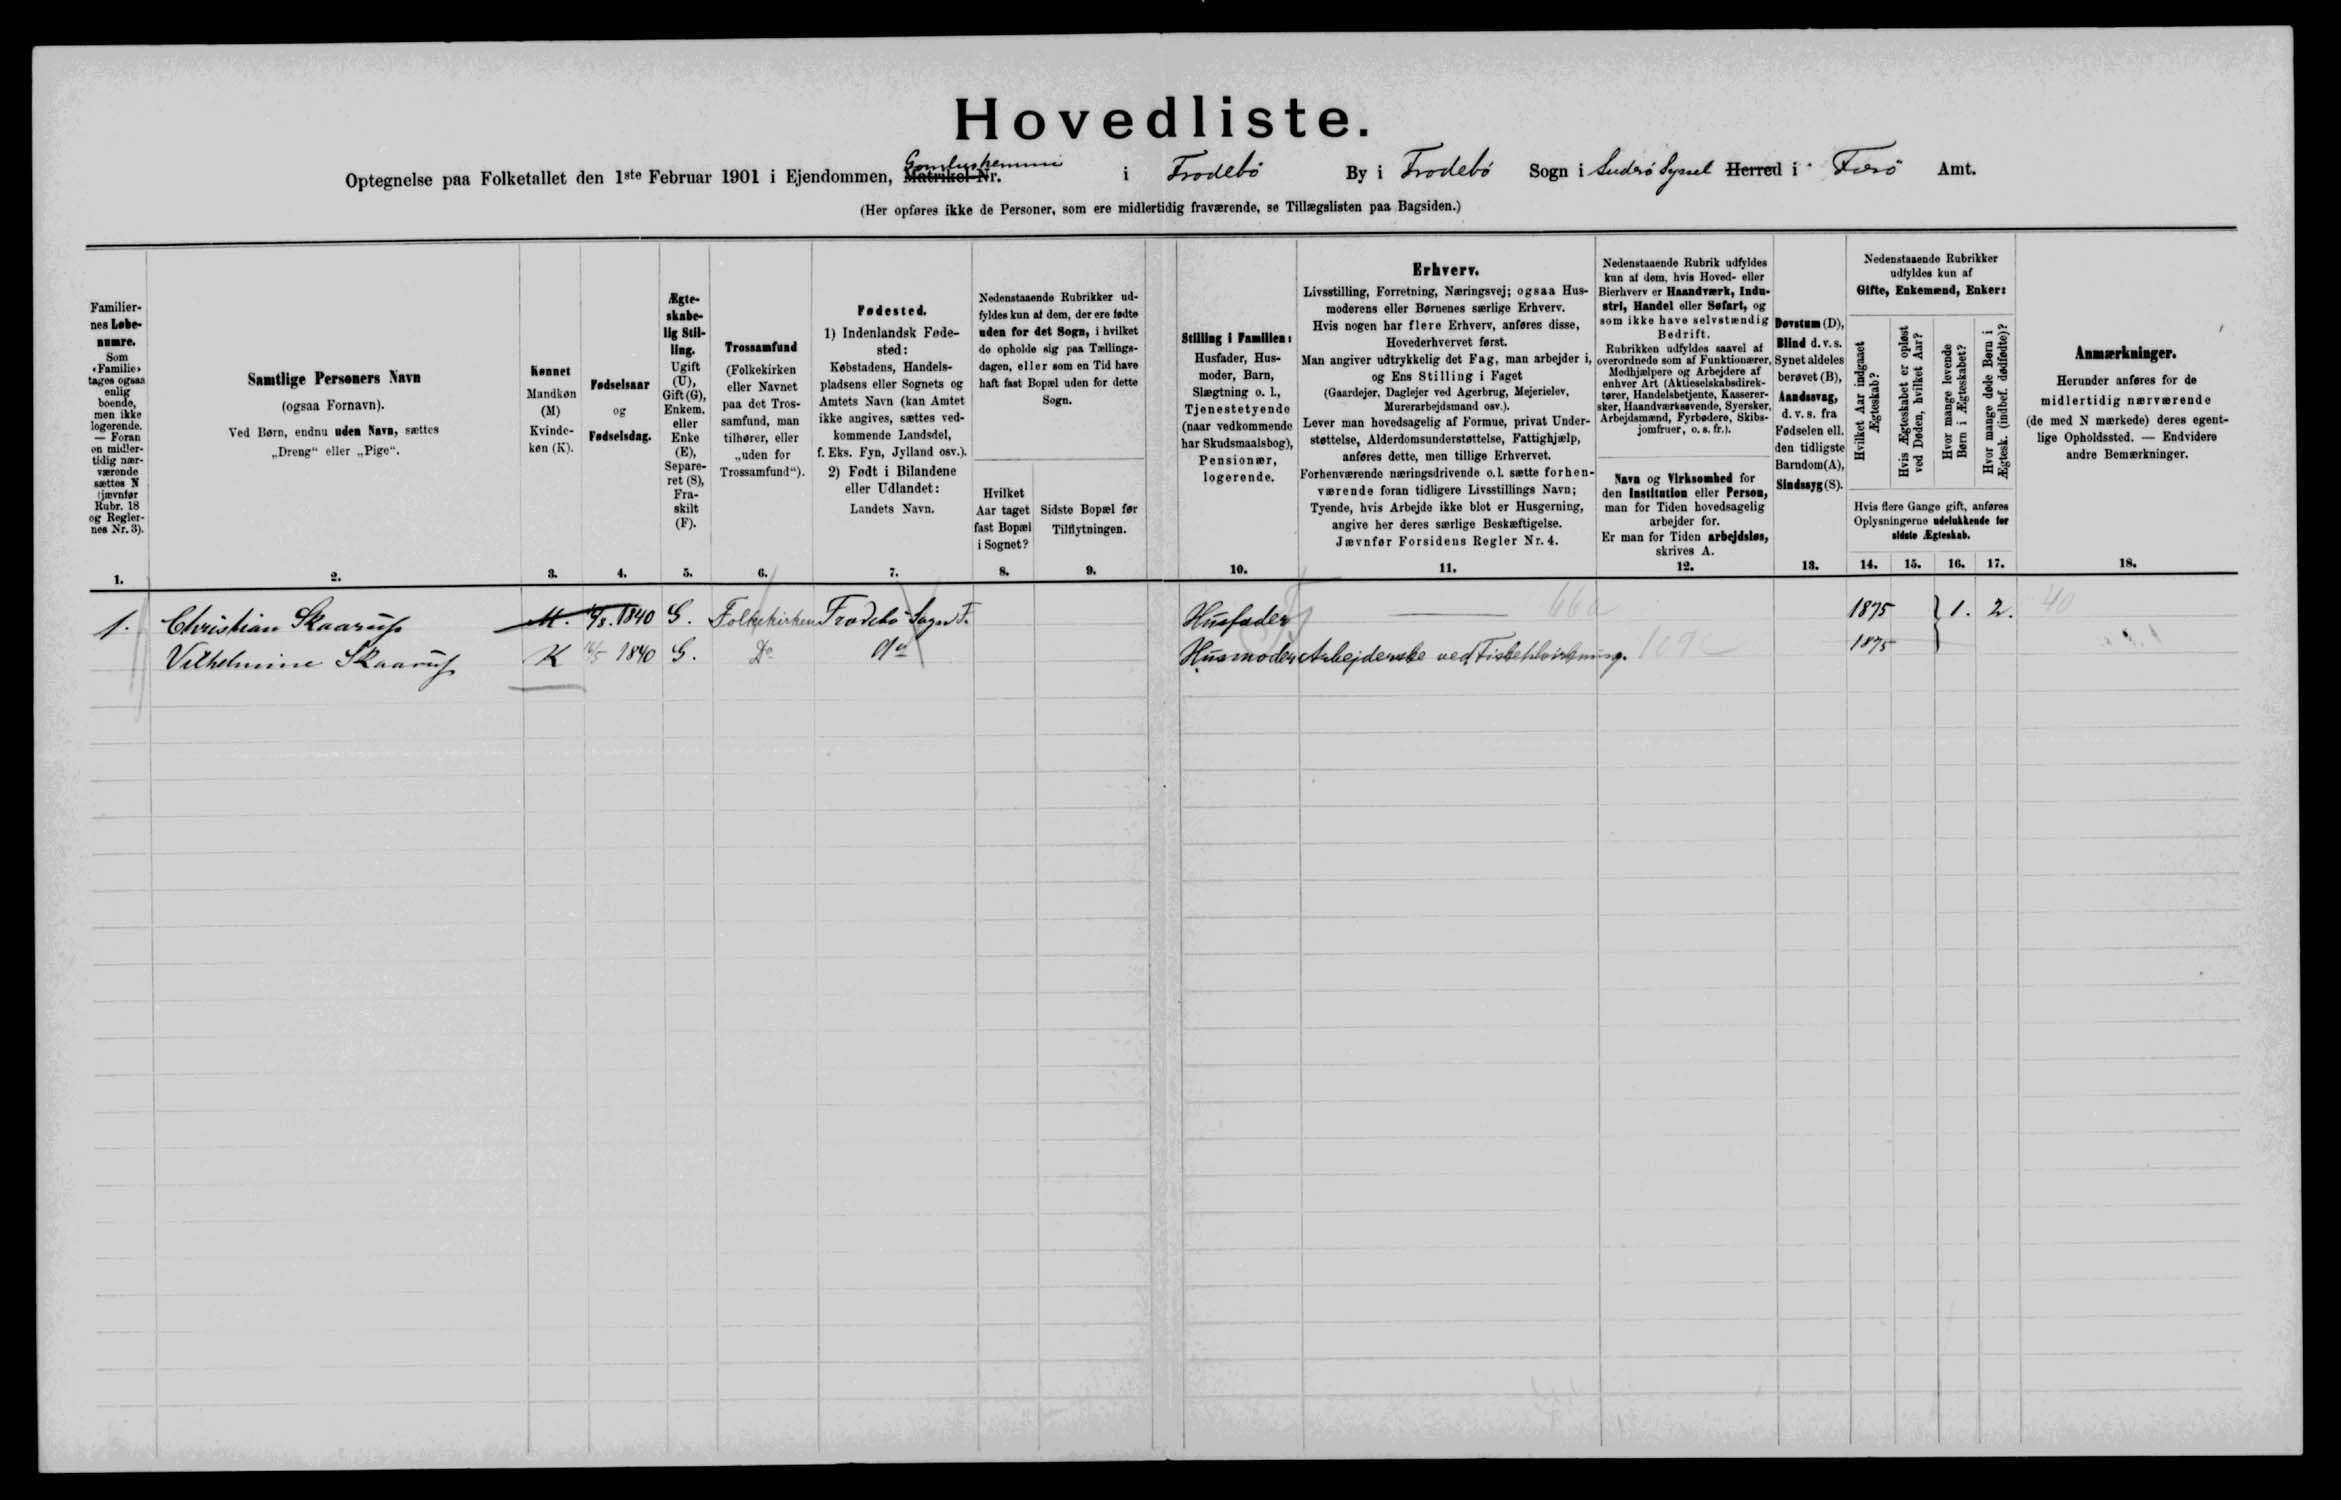 Hovedliste.
Optegnelse paa Folketallet den 1ste Februar 1901 i Ejendommen, Matrikel-Nr. i Frodebö By i Frodebö Sogn i Suderö Syssel Herred i Færö Amt.
(Her opføres ikke de Personer, som ere midlertidig fraværende, se Tillægslisten paa Bagsiden.)
Familier-
nes Løbe-
numre.
Som
«Familie»
tages ogsaa
enlig
boende,
men ikke
logerende.
— Foran
en midler-
tidig nær-
værende
sættes N
(jævnfør
Rubr. 18
og Regler-
nes Nr. 3).
1.
Samtlige Personers Navn
(ogsaa Fornavn).
Ved Børn, endnu uden Navn, sættes
„Dreng“ eller „Pige“.
2.
Kønnet
Mandkøn
(M)
Kvinde-
køn (K).
3.
Fødselsaar
og
Fødselsdag.
4.
Ægte-
skabe-
lig Stil-
ling.
Ugift
(U),
Gift (G),
Enkem.
eller
Enke
(E),
Separe-
ret (S),
Fra-
skilt
(F).
5.
Trossamfund
(Folkekirken
eller Navnet
paa det Tros-
samfund, man
tilhører, eller
„uden for
Trossamfund“).
6.
Fødested.
1) Indenlandsk Føde-
sted:
Købstadens, Handels-
pladsens eller Sognets og
Amtets Navn (kan Amtet
ikke angives, sættes ved-
kommende Landsdel,
f. Eks. Fyn, Jylland osv.).
2) Født i Bilandene
eller Udlandet:
Landets Navn.
7.
Nedenstaaende Rubrikker ud-
fyldes kun af dem, der ere fødte
uden for det Sogn, i hvilket
de opholde sig paa Tællings-
dagen, eller som en Tid have
haft fast Bopæl uden for dette
Sogn.
Hvilket
Aar taget
fast Bopæl
i Sognet?
8.
Sidste Bopæl før
Tilflytningen.
9.
Stilling i Familien:
Husfader, Hus-
moder, Barn,
Slægtning o. l.,
Tjenestetyende
(naar vedkommende
har Skudsmaalsbog),
Pensionær,
logerende.
10.
Erhverv.
Livsstilling, Forretning, Næringsvej; ogsaa Hus-
moderens eller Børnenes særlige Erhverv.
Hvis nogen har flere Erhverv, anføres disse,
Hovederhvervet først.
Man angiver udtrykkelig det Fag, man arbejder i,
og Ens Stilling i Faget
(Gaardejer, Daglejer ved Agerbrug, Mejerielev,
Murerarbejdsmand osv.).
Lever man hovedsagelig af Formue, privat Under-
støttelse, Alderdomsunderstøttelse, Fattighjælp,
anføres dette, men tillige Erhvervet.
Forhenværende næringsdrivende o.l. sætte forhen-
værende foran tidligere Livsstillings Navn;
Tyende, hvis Arbejde ikke blot er Husgerning,
angive her deres særlige Beskæftigelse.
Jævnfør Forsidens Regler Nr. 4.
11.
Nedenstaaende Rubrik udfyldes
kun af dem, hvis Hoved- eller
Bierhverv er Haandværk, Indu-
stri, Handel eller Søfart, og
som ikke have selvstændig
Bedrift.
Rubrikken udfyldes saavel af
overordnede som af Funktionærer,
Medhjælpere og Arbejdere af
enhver Art (Aktieselskabsdirek-
tører, Handelsbetjente, Kasserer-
sker, Haandværkssvende, Syersker,
Arbejdsmænd, Fyrbødere, Skibs-
jomfruer, o. s. fr.).
Navn og Virksomhed for
den Institution eller Person,
man for Tiden hovedsagelig
arbejder for.
Er man for Tiden arbejdsløs,
skrives A.
12.
Døvstum (D),
Blind d. v. s.
Synet aldeles
berøvet (B),
Aandssvag,
d. v. s. fra
Fødselen ell.
den tidligste
Barndom (A),
Sindssyg (S).
13.
Nedenstaaende Rubrikker
udfyldes kun af
Gifte, Enkemænd, Enker:
Hvilket Aar indgaaet
Ægteskab?
Hvis Ægteskabet er opløst
ved Døden, hvilket Aar?
Hvor mange levende
Børn i Ægteskabet?
Hvor mange døde Børn i
Ægtesk. (indbef. dødfødte)?
Hvis flere Gange gift, anføres
Oplysningerne udelukkende for
sidste Ægteskab.
14. 15. 16. 17.
Anmærkninger.
Herunder anføres for de
midlertidig nærværende
(de med N mærkede) deres egent-
lige Opholdssted. — Endvidere
andre Bemærkninger.
18.
1. Christian Skaarup M. 1840 G. Folkekirken Frodebö Sogn F. Husfader 66a 1875 1. 2. 40
Vilhelmine Skaarup K 1840 G. Do Do Husmoder Arbejderske ved Fisketilvirkning. 1875